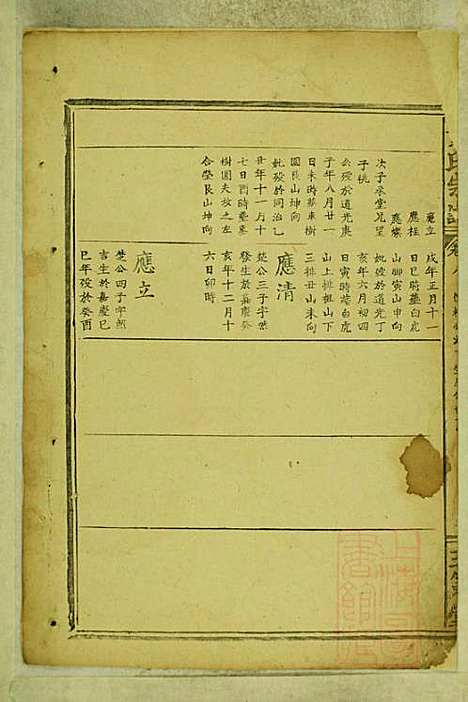 應立
應桂
應燦
次子承堂兄望
子桃
公歿於道光庚
子年八月廿一
日未時葬東樹
園艮山坤向
妣歿於同治乙
丑年十一月十
七日酉時葬東
樹園夫故之左
合塋艮山坤向
戌年正月十一
日巳時葬白虎
山腳寅山申向
妣歿於道光丁
亥年六月初四
日寅時葬白虎
山上排祖山下
三排丑山未向
應清
楚公三子字世
發生於嘉慶癸
亥年十二月十
六日卯時
應立
楚公四子字朝
吉生於嘉慶己
巳年歿於癸酉
上海圖書館藏